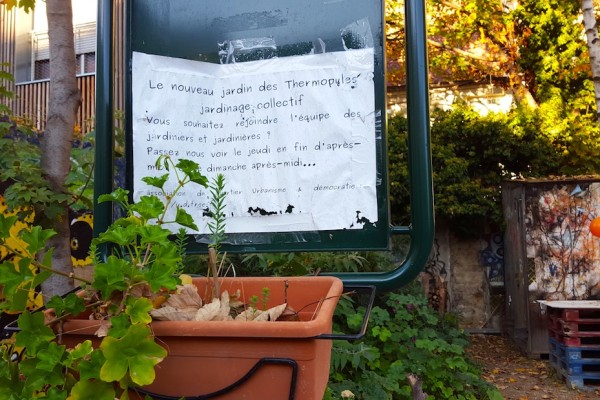 Le nouveau jardin des Thermopyles
jardinage collectif
Vous souhaitez rejoindre l'équipe des
jardiniers et jardinières ?
Passez nous voir le jeudi en fin d'après-
dimanche après-midi...
association de Urbanisme & démocratie